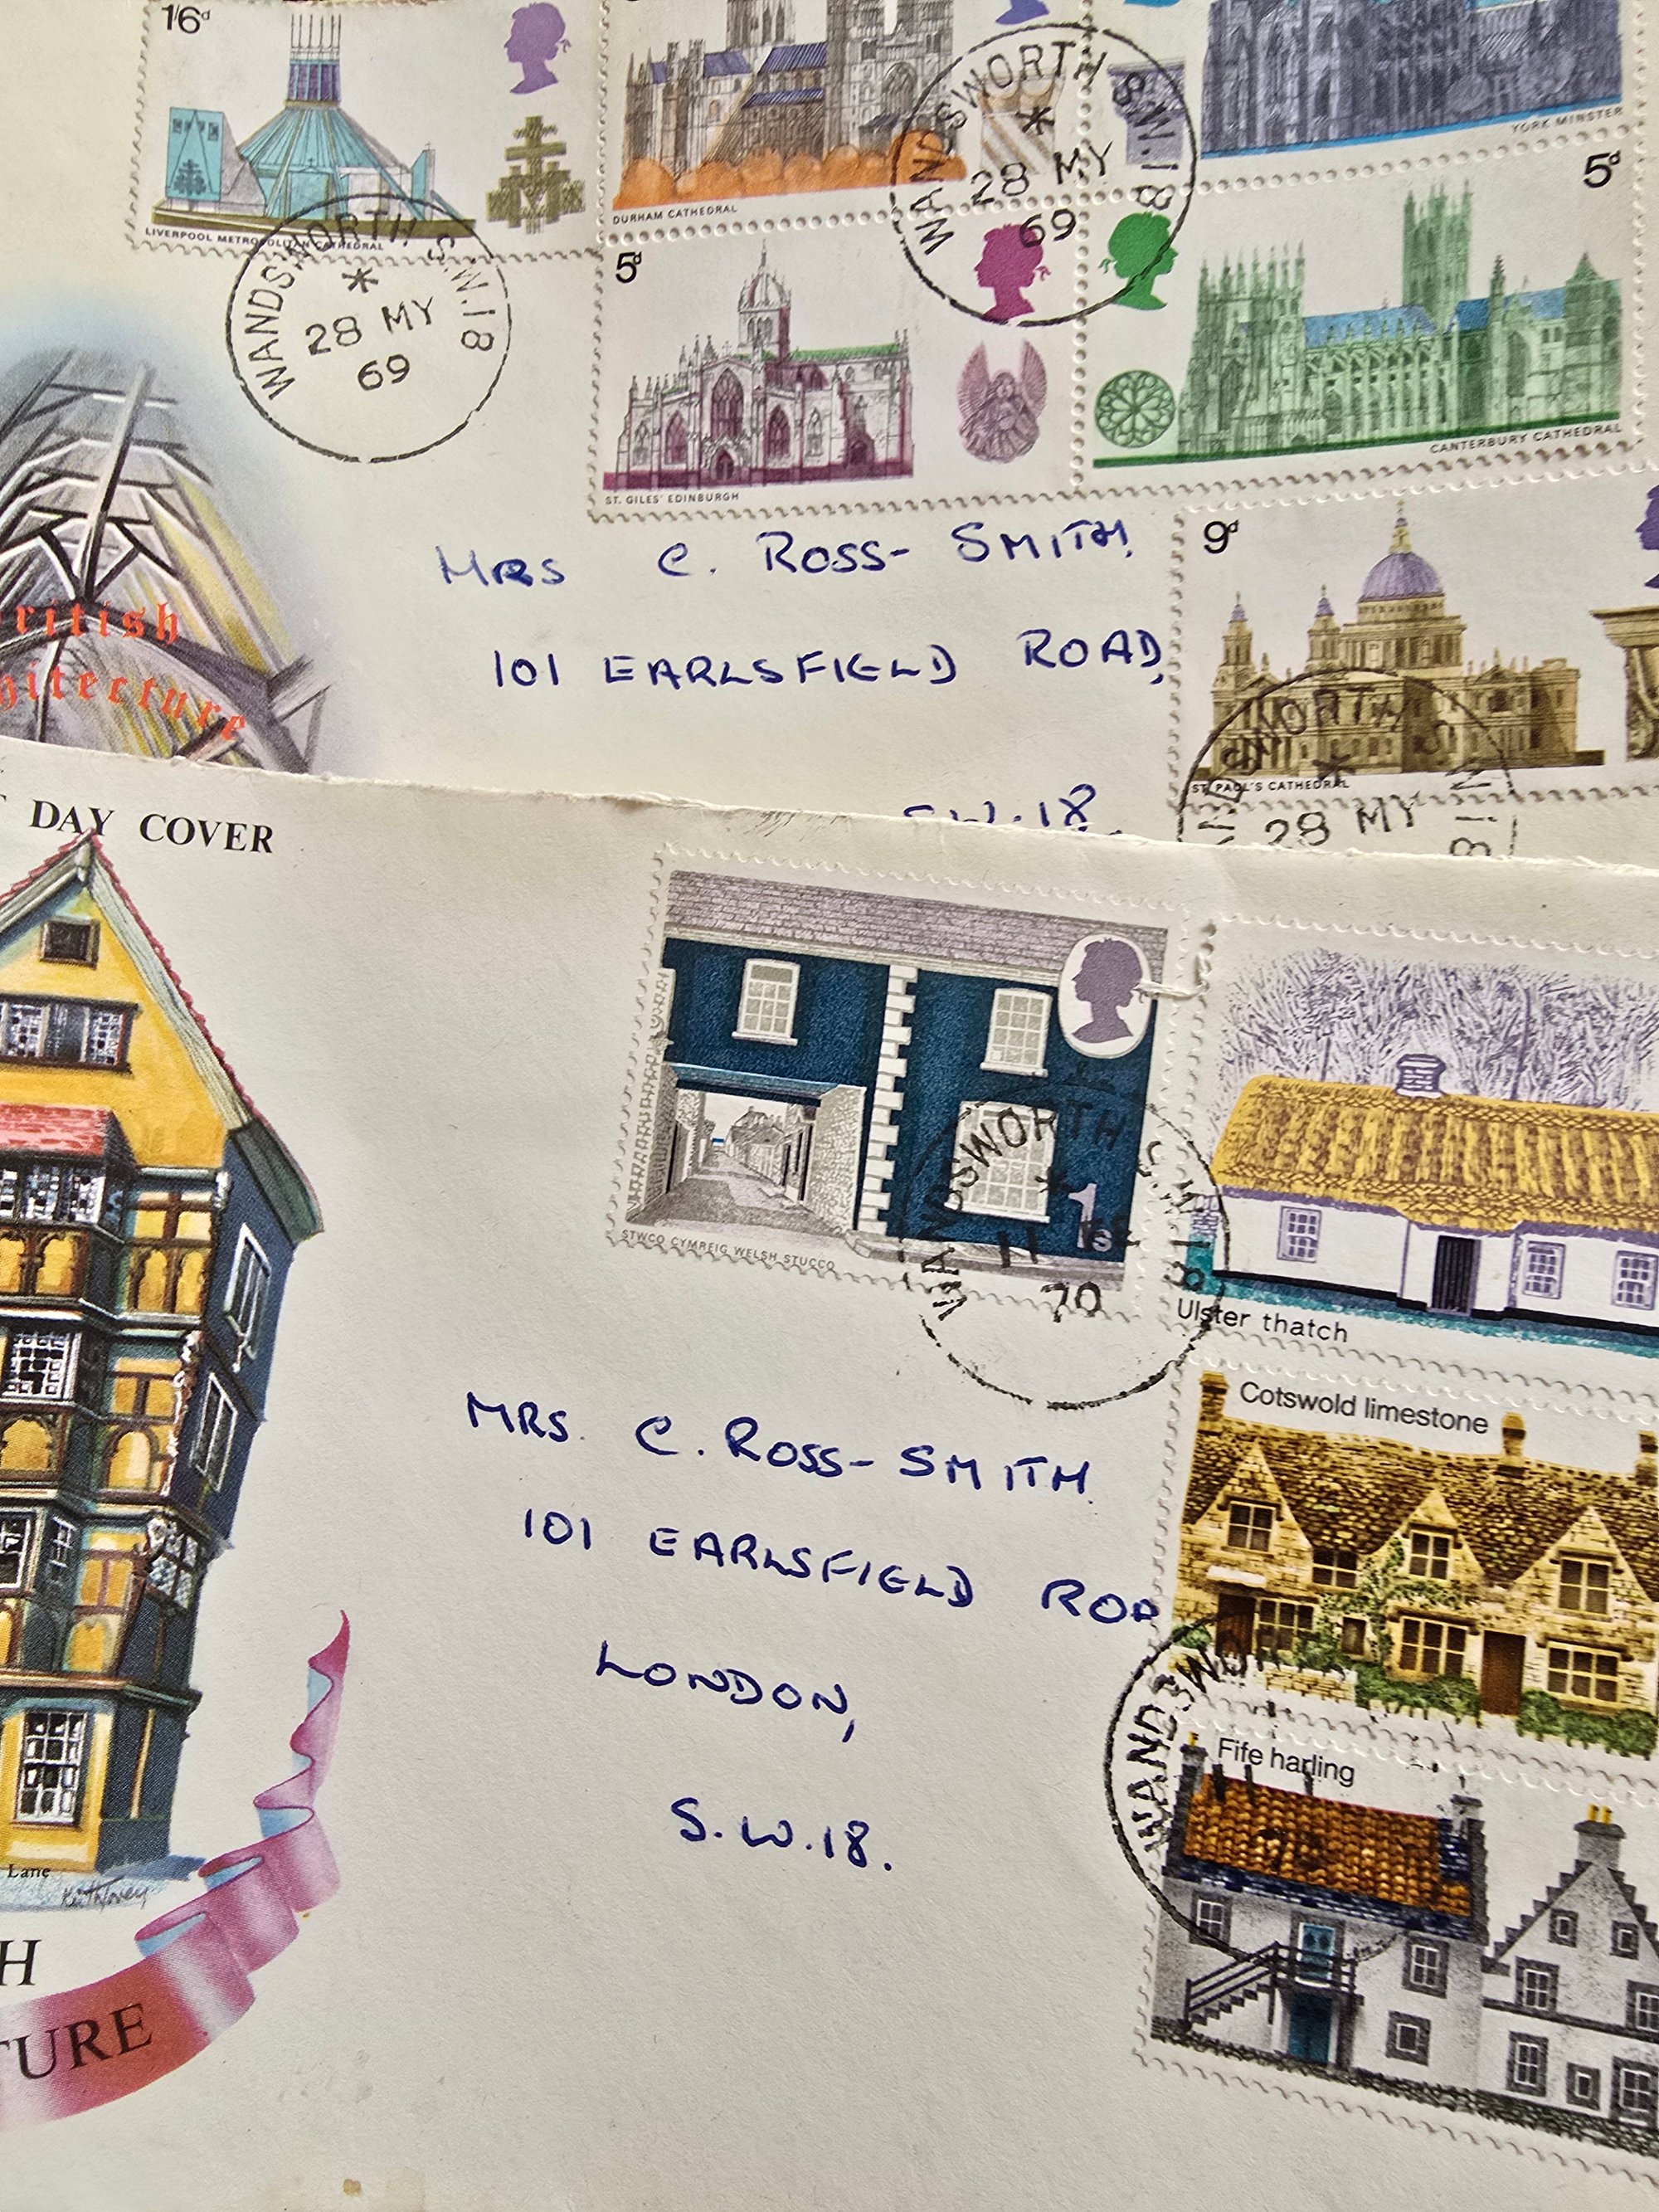 1'6d
LIVERPOOL METROPOLITAN CATHEDRAL
DURHAM CATHEDRAL
YORK MINSTER
WANDSWORTH S.W.18
*
28 MY
69
WANDSWORTH S.W.18
*
28 MY
69
5d
ST. GILES' EDINBURGH
5d
CANTERBURY CATHEDRAL
9d
ST. PAUL'S CATHEDRAL
28 MY
ritish
hitecture
MRS C. ROSS-SMITH,
101 EARLSFIELD ROAD,
S.W.18.
T DAY COVER
Lane
H
TURE
STWCO CYMREIG WELSH STUCCO
1s
WANDSWORTH S.W.18
*
11
70
Ulster thatch
Cotswold limestone
Fife harling
WANDSWO
MRS. C. ROSS-SMITH.
101 EARLSFIELD ROA
LONDON,
S.W.18.